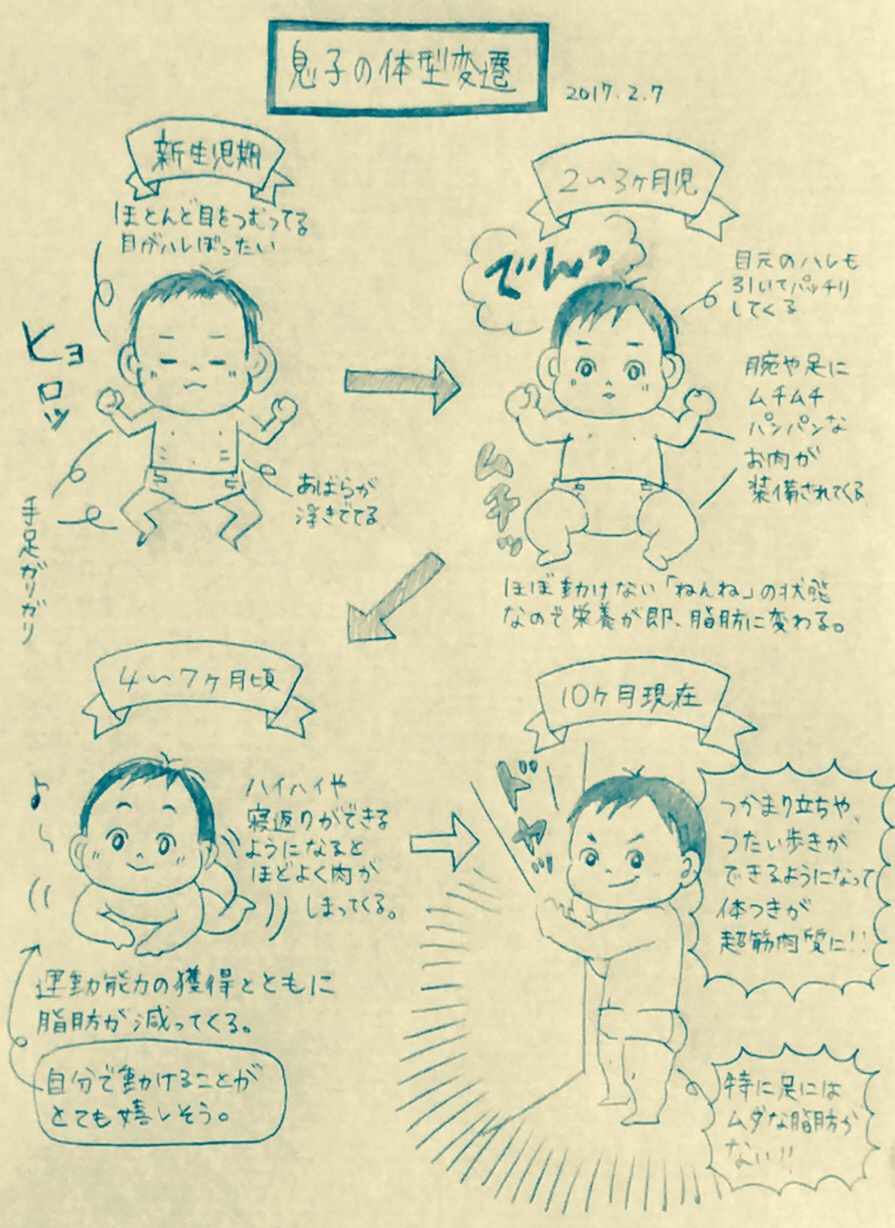 息子の体型変遷
2017.2.7
新生児期
ほとんど目をつむってる
目がハレぼったい
ヒョロッ
手足ガリガリ
あばらが
浮きでてる
2〜3ヶ月児
でんっ
目元のハレも
引いてパッチリ
してくる
腕や足に
ムチムチ
パンパンな
お肉が
装備されてくる
ムチッ
ほぼ動けない「ねんね」の状態
なので栄養が即、脂肪に変わる。
4〜7ヶ月頃
♪
ハイハイや
寝返りができる
ようになると
ほどよく肉が
しまってくる。
運動能力の獲得とともに
脂肪が減ってくる。
自分で動けることが
とても嬉しそう。
10ヶ月現在
ドヤッ
つかまり立ちや、
つたい歩きが
できるようになって
体つきが
超筋肉質に!!
特に足には
ムダな脂肪が
ない!!